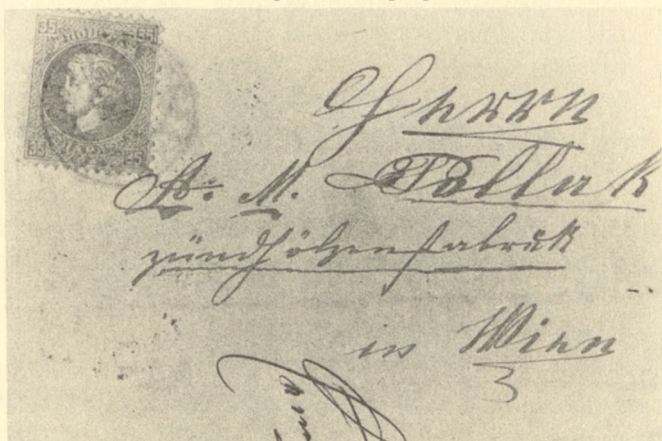 35 35
35 35
Herrn
A. M. Pollak
Zündhölzenfabrik
in Wien